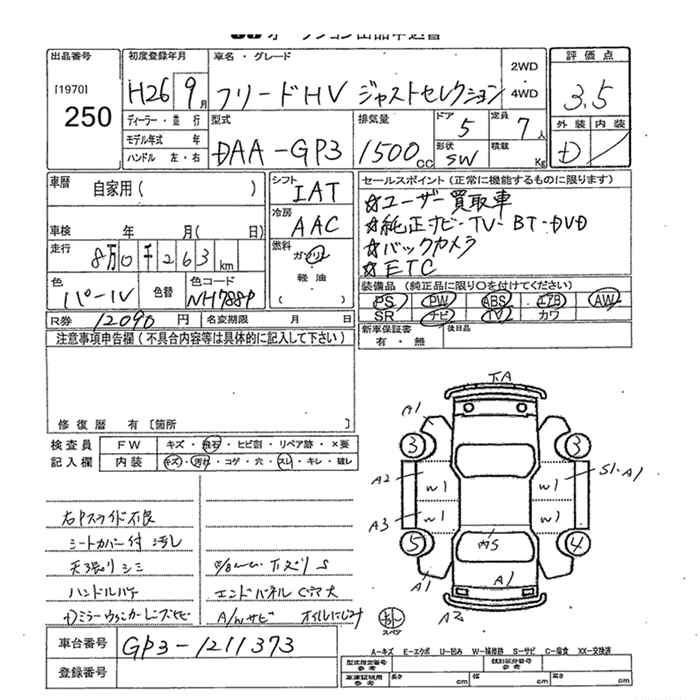 出品番号
[1970]
250
初度登録年月
H26 9月
ディーラー・並行
モデル年式 年
ハンドル 左・右
車名・グレード
フリードHV ジャストセレクション
2WD
4WD
評価点
3.5
外装 内装
D
型式
DAA-GP3
排気量
1500cc
ドア 5
定員 7人
形状 SW
積載 Kg
車歴
自家用( )
車検 年 月( 日)
走行 8万0千263km
色 パール
色替
色コード NH788P
シフト
IAT
冷房
AAC
燃料
ガソリン
軽油
( )
セールスポイント(正常に機能するものに限ります)
☆ユーザー買取車
☆純正ナビ-TV-BT-DVD
☆バックカメラ
☆ETC
装備品 (純正品に限り○を付けてください)
PS PW ABS エアB AW
SR ナビ TV カワ
新車保証書
有・無
後日品
R券 12090円
名変期限 月 日
注意事項申告欄(不具合内容等は具体的に記入して下さい)
修復歴 有〔箇所 〕
検査員
記入欄
FW キズ・飛石・ヒビ割・リペア跡・×要
内装 キズ・汚れ・コゲ・穴・スレ・キレ・破レ
右Pスライド不良
シートカバー付 汚レ
天張リシミ
ハンドルハゲ
エンドパネル
A/Wサビ オイルにじみ
下A
A1
3 3
A2
W1 W1
S1・A1
A3
W1 W1
5 4
内S
A1
A1
A2
スペア
車台番号
GP3-1211373
登録番号
A-キズ E-エクボ U-凹み W-補修跡 S-サビ C-腐食 XX-交換済
型式指定番号
参考
類別区分番号
参考
車庫証明用
参考
長さ cm
幅 cm
高さ cm